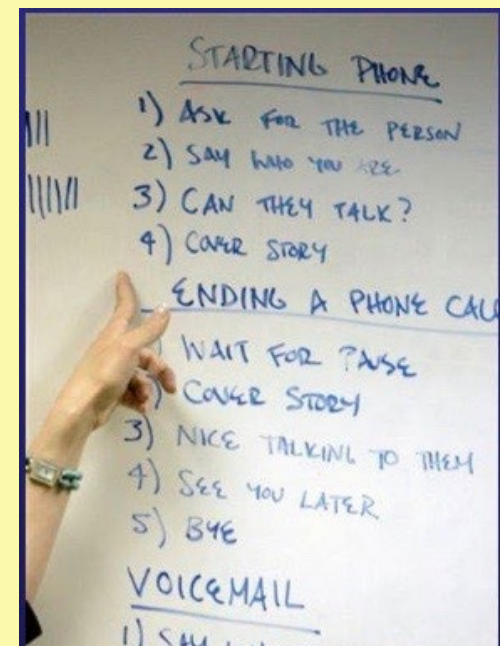 STARTING PHONE
1) ASK FOR THE PERSON
2) SAY WHO YOU ARE
3) CAN THEY TALK?
4) COVER STORY
ENDING A PHONE CALL
) WAIT FOR PAUSE
) COVER STORY
3) NICE TALKING TO THEM
4) SEE YOU LATER
5) BYE
VOICEMAIL
1) SAY